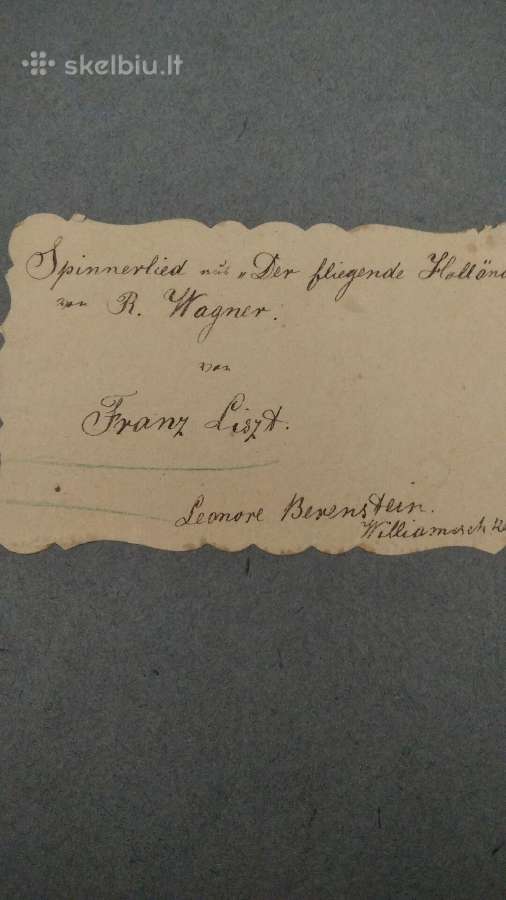 skelbiu.lt
Spinnerlied aus „Der fliegende Hollän
von R. Wagner.
von
Franz Liszt.
Leonore Berenstein.